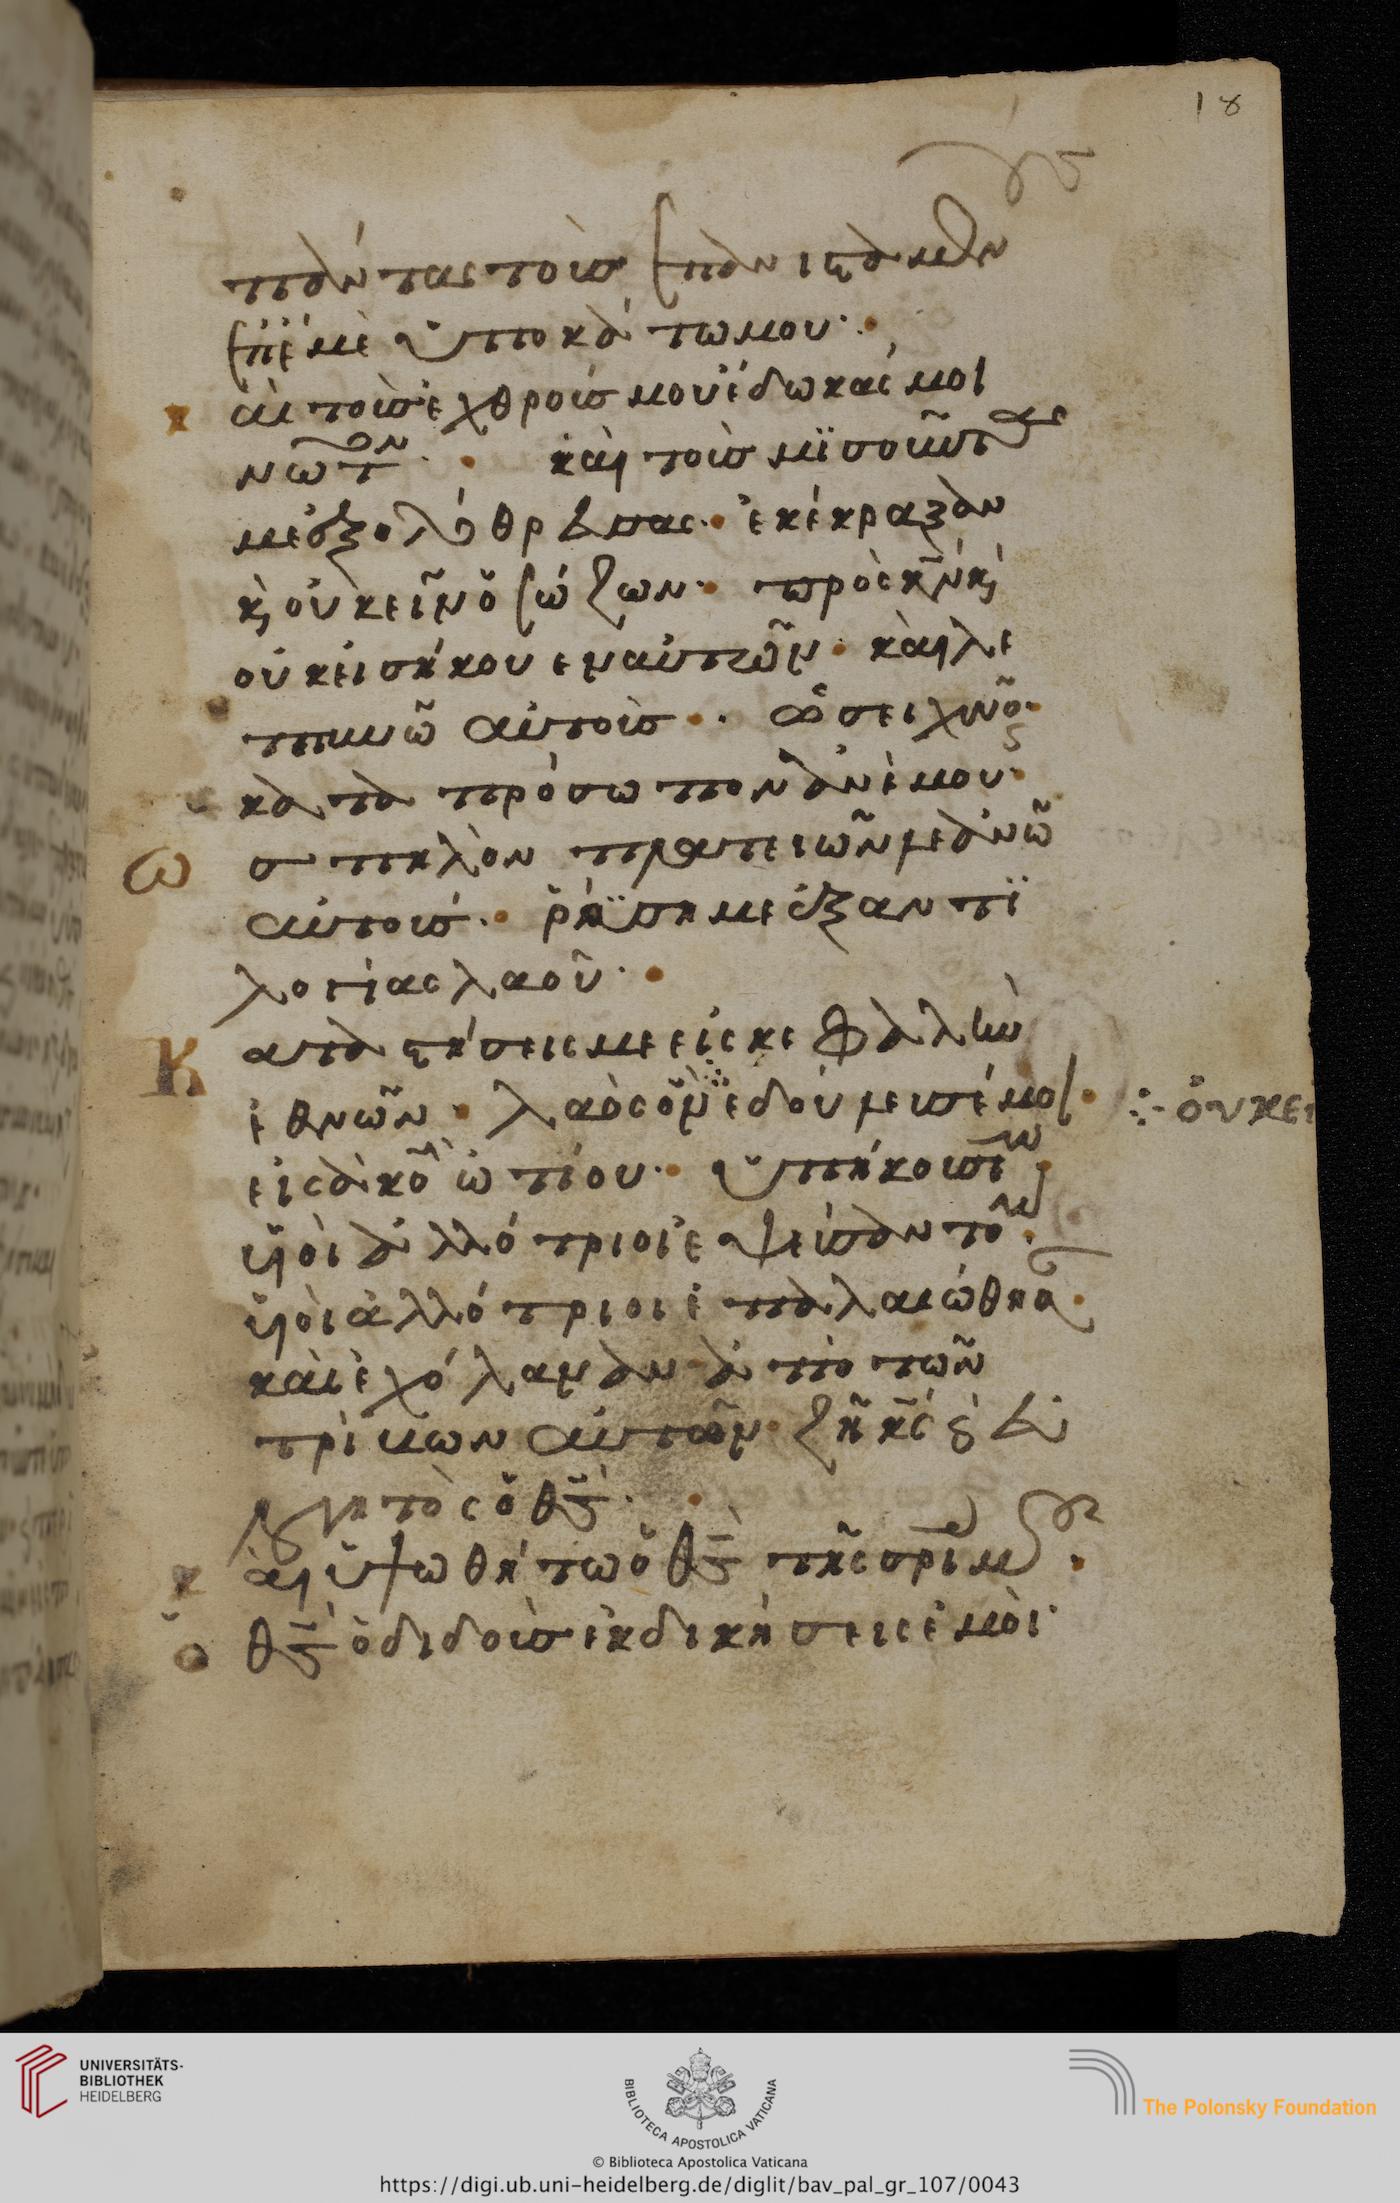 18
πάντας τοὺσ ἐπανισταμέν
ἐπ ἐμὲ ὑποκάτω μου·
κ αι τοὺσ ἐχθρούσ μου ἔδωκάς μοι
νῶτον· καὶ τοὺσ μϊσοῦντας
με ἐξολόθρευσας· ἐκέκραξαν
κ(αὶ) οὐκ εἶν ὁ σώζων· πρὸς κν κ(αὶ)
οὐκ εἰσήκουεν αὐτῶν· καὶ λε
πτυνῶ αὐτοὺσ ὡσεὶ χνοῦν
κατα πρόσωπον ἀνέμου·
ω σ πηλὸν πλατειῶν λεανῶ
αὐτούσ· ῥύσῃ με ἐξ αντϊ
λογίας λαοῦ·
Κ αταστήσεις με εἰς κεφαλὴν
ἐθνῶν· λαὸς ὃν ἐδούλευσέ μοι· ὀυκ ει
εἰς ἀκοὴν ὠτίου· ὑπήκουσέ μου
υἱοὶ ἀλλότριοι ἐψεύσαντό μοι
υἱοὶ ἀλλότριοι ἐπαλαιώθησαν
καὶ ἐχώλαναν ἀπὸ τῶν
τρίβων αὐτῶν· ζῇ κς κ(αὶ) εὐ
λογητὸς ὁ θς·
κ αι ὑψωθήτω ὁ θς τῆς σρίας μου
ὁ θς ὁ διδοὺσ ἐκδικήσεις ἐμοὶ·
UNIVERSITÄTS-
BIBLIOTHEK
HEIDELBERG
BIBLIOTECA APOSTOLICA VATICANA
The Polonsky Foundation
© Biblioteca Apostolica Vaticana
https://digi.ub.uni-heidelberg.de/diglit/bav_pal_gr_107/0043